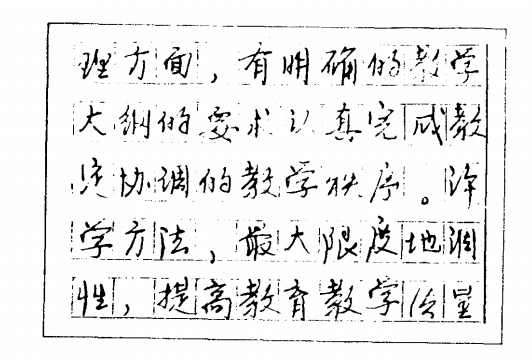 理方面，有明确的教学
大纲的要求认真完成教
定协调的教学秩序。许
学方法，最大限度地调
性，提高教育教学质量